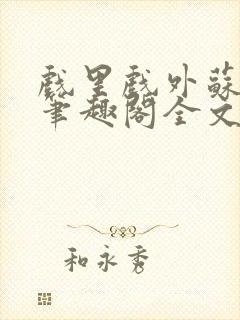 戲里戲外蘇
筆趣閣全文
和永秀